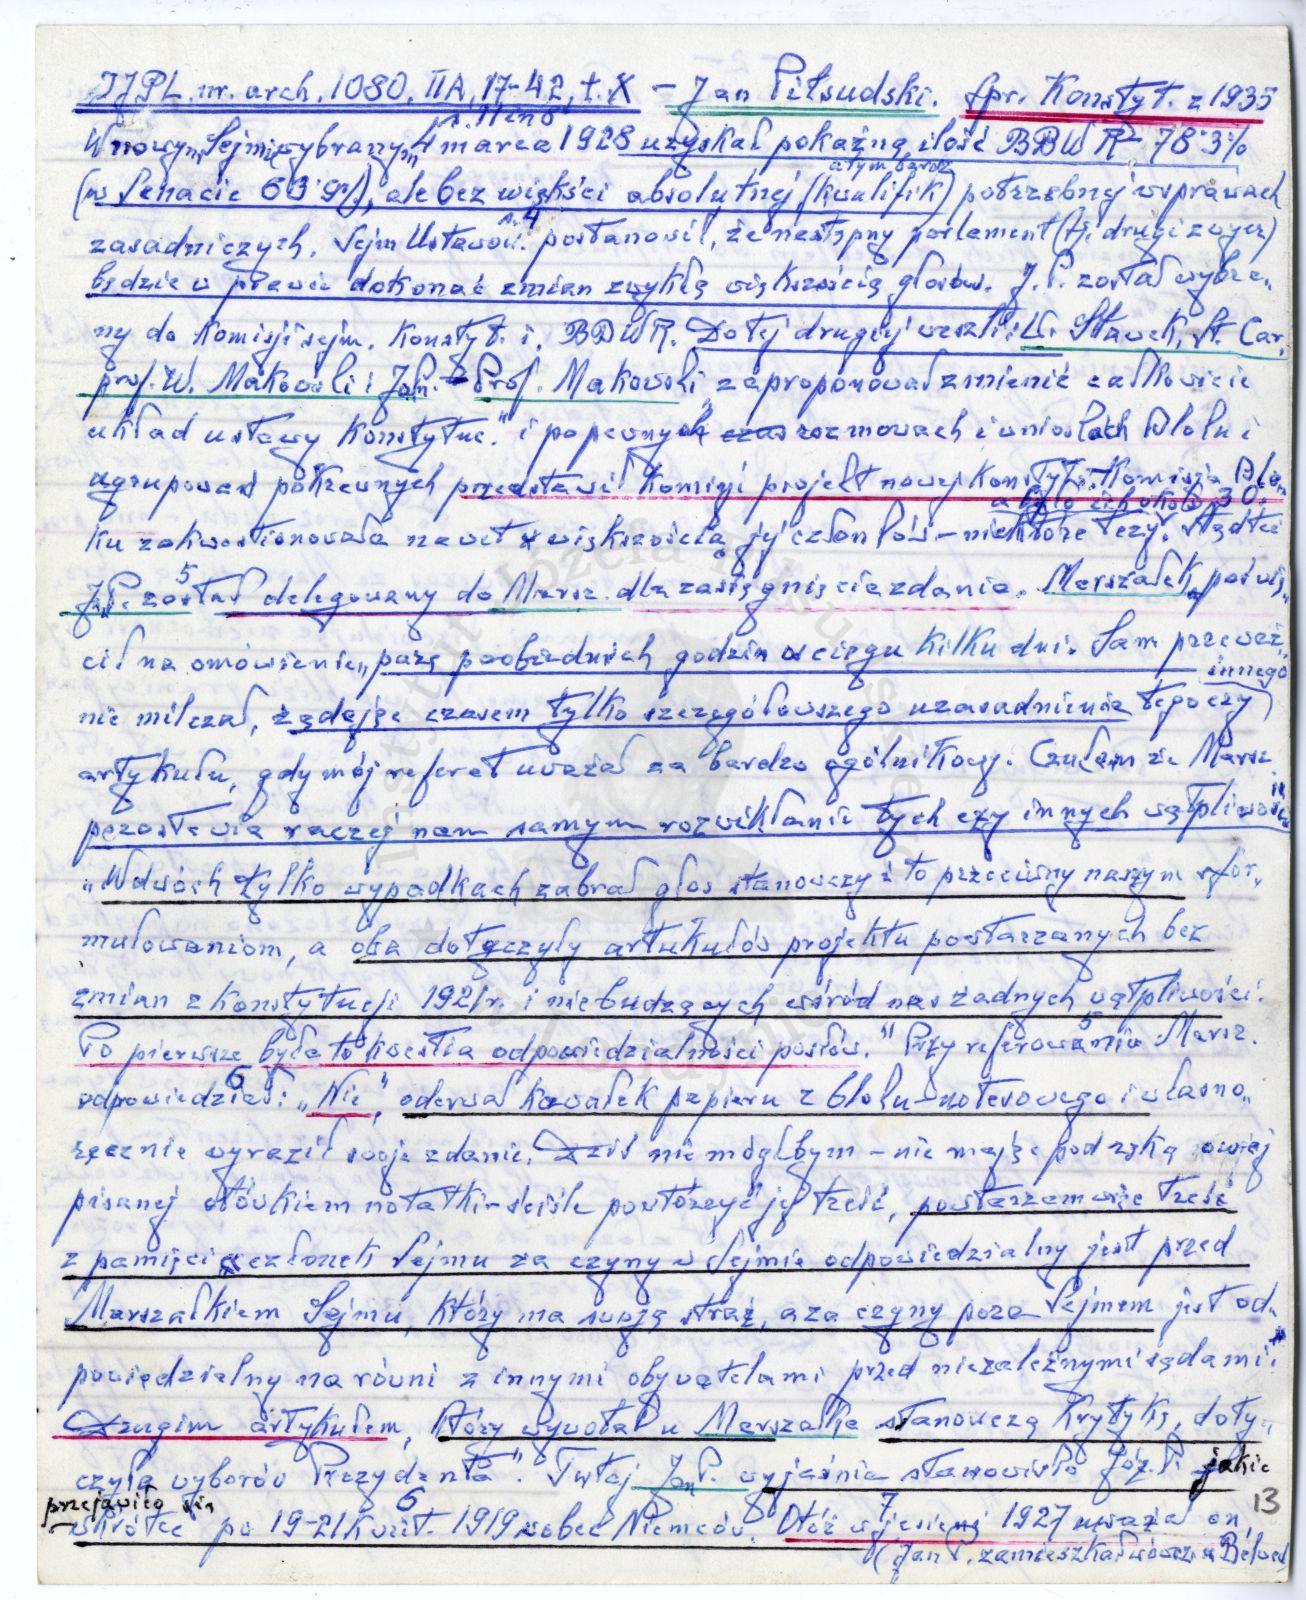 IJPL. nr. arch. 1080, IIA, 17-42, t. X – Jan Piłsudski. Spr. Konstyt. z 1935
W nowym Sejmie wybranym 4 marca 1928 uzyskał pokaźną ilość BBWR – 78·3%
(w Senacie 63·9%), ale bez większści absolutnej (kwalifik) potrzebnej w sprawach
zasadniczych. Sejm Ustawow. postanowił, że następny parlament (tj. drugi zwycz)
będzie w prawie dokonać zmian zwykłą większością głosów. J. P. został wybra„
ny do Komisji sejm. Konstyt. i. BBWR. Do tej drugiej weszli: W. Sławek, St. Car,
prof. W. Makowski i Jan P. – Prof. Makowski „zaproponował zmienić całkowicie
układ ustawy Konstytuc." i po pewnych rozmowach i wnioskach Bloku i
ugrupowań pokrewnych przedstawił Komisji projekt nowej Konstyt. „Komisja Blo„
a było ich około 30.
ku zakwestionowała nawet większością jej członków – niektóre tezy. Stąd też
J.P. został delegowany do Marsz. dla zasięgnięcia zdania. Marszałek, poświę„
cił na omówienie „parę poobiednich godzin w ciągu kilku dni. Sam przeważ„
innego
nie milczał, żądając czasem tylko szczegółowszego uzasadnienia tego czy
artykułu, gdy mój referat uważał za bardzo ogólnikowy. Czułem że Marsz.
pozostawia raczej nam samym rozwikłanie tych czy innych wątpliwości
„W dwóch tylko wypadkach zabrał głos stanowczy i to przeciwny naszym sfor„
mułowaniom, a oba dotyczyły artykułów projektu powtarzanych bez
zmian z Konstytucji 1921 r. i nie budzących wśród nas żadnych wątpliwości.
Po pierwsze była to kwestia odpowiedzialności posłów." Przy referowaniu Marsz.
odpowiedział: „Nie", oderwał kawałek papieru z bloku-notesowego i własno„
ręcznie wyraził swoje zdanie. Dziś nie mógłbym – nie mając pod ręką owej
pisanej ołówkiem notatki – ściśle powtórzyć jej treść, powtarzam więc treść
z pamięci: członek Sejmu za czyny w Sejmie odpowiedzialny jest przed
Marszałkiem Sejmu, który ma swoją straż, a za czyny poza Sejmem jest od„
powiedzialny na równi z innymi obywatelami przed niezależnymi sądami."
Drugim artykułem, który wywołał u Marszałka stanowczą krytykę, doty„
czyła wyborów Prezydenta". Tutaj Jan P. wyjaśnia stanowisko Józ. P. jakie
przejawiło się
wkrótce po 19-21 kwiet. 1919 wobec Niemców. Otóż w jesieni 1927 uważa on
(Jan P. zamieszkał wówcz. w Belwed
13